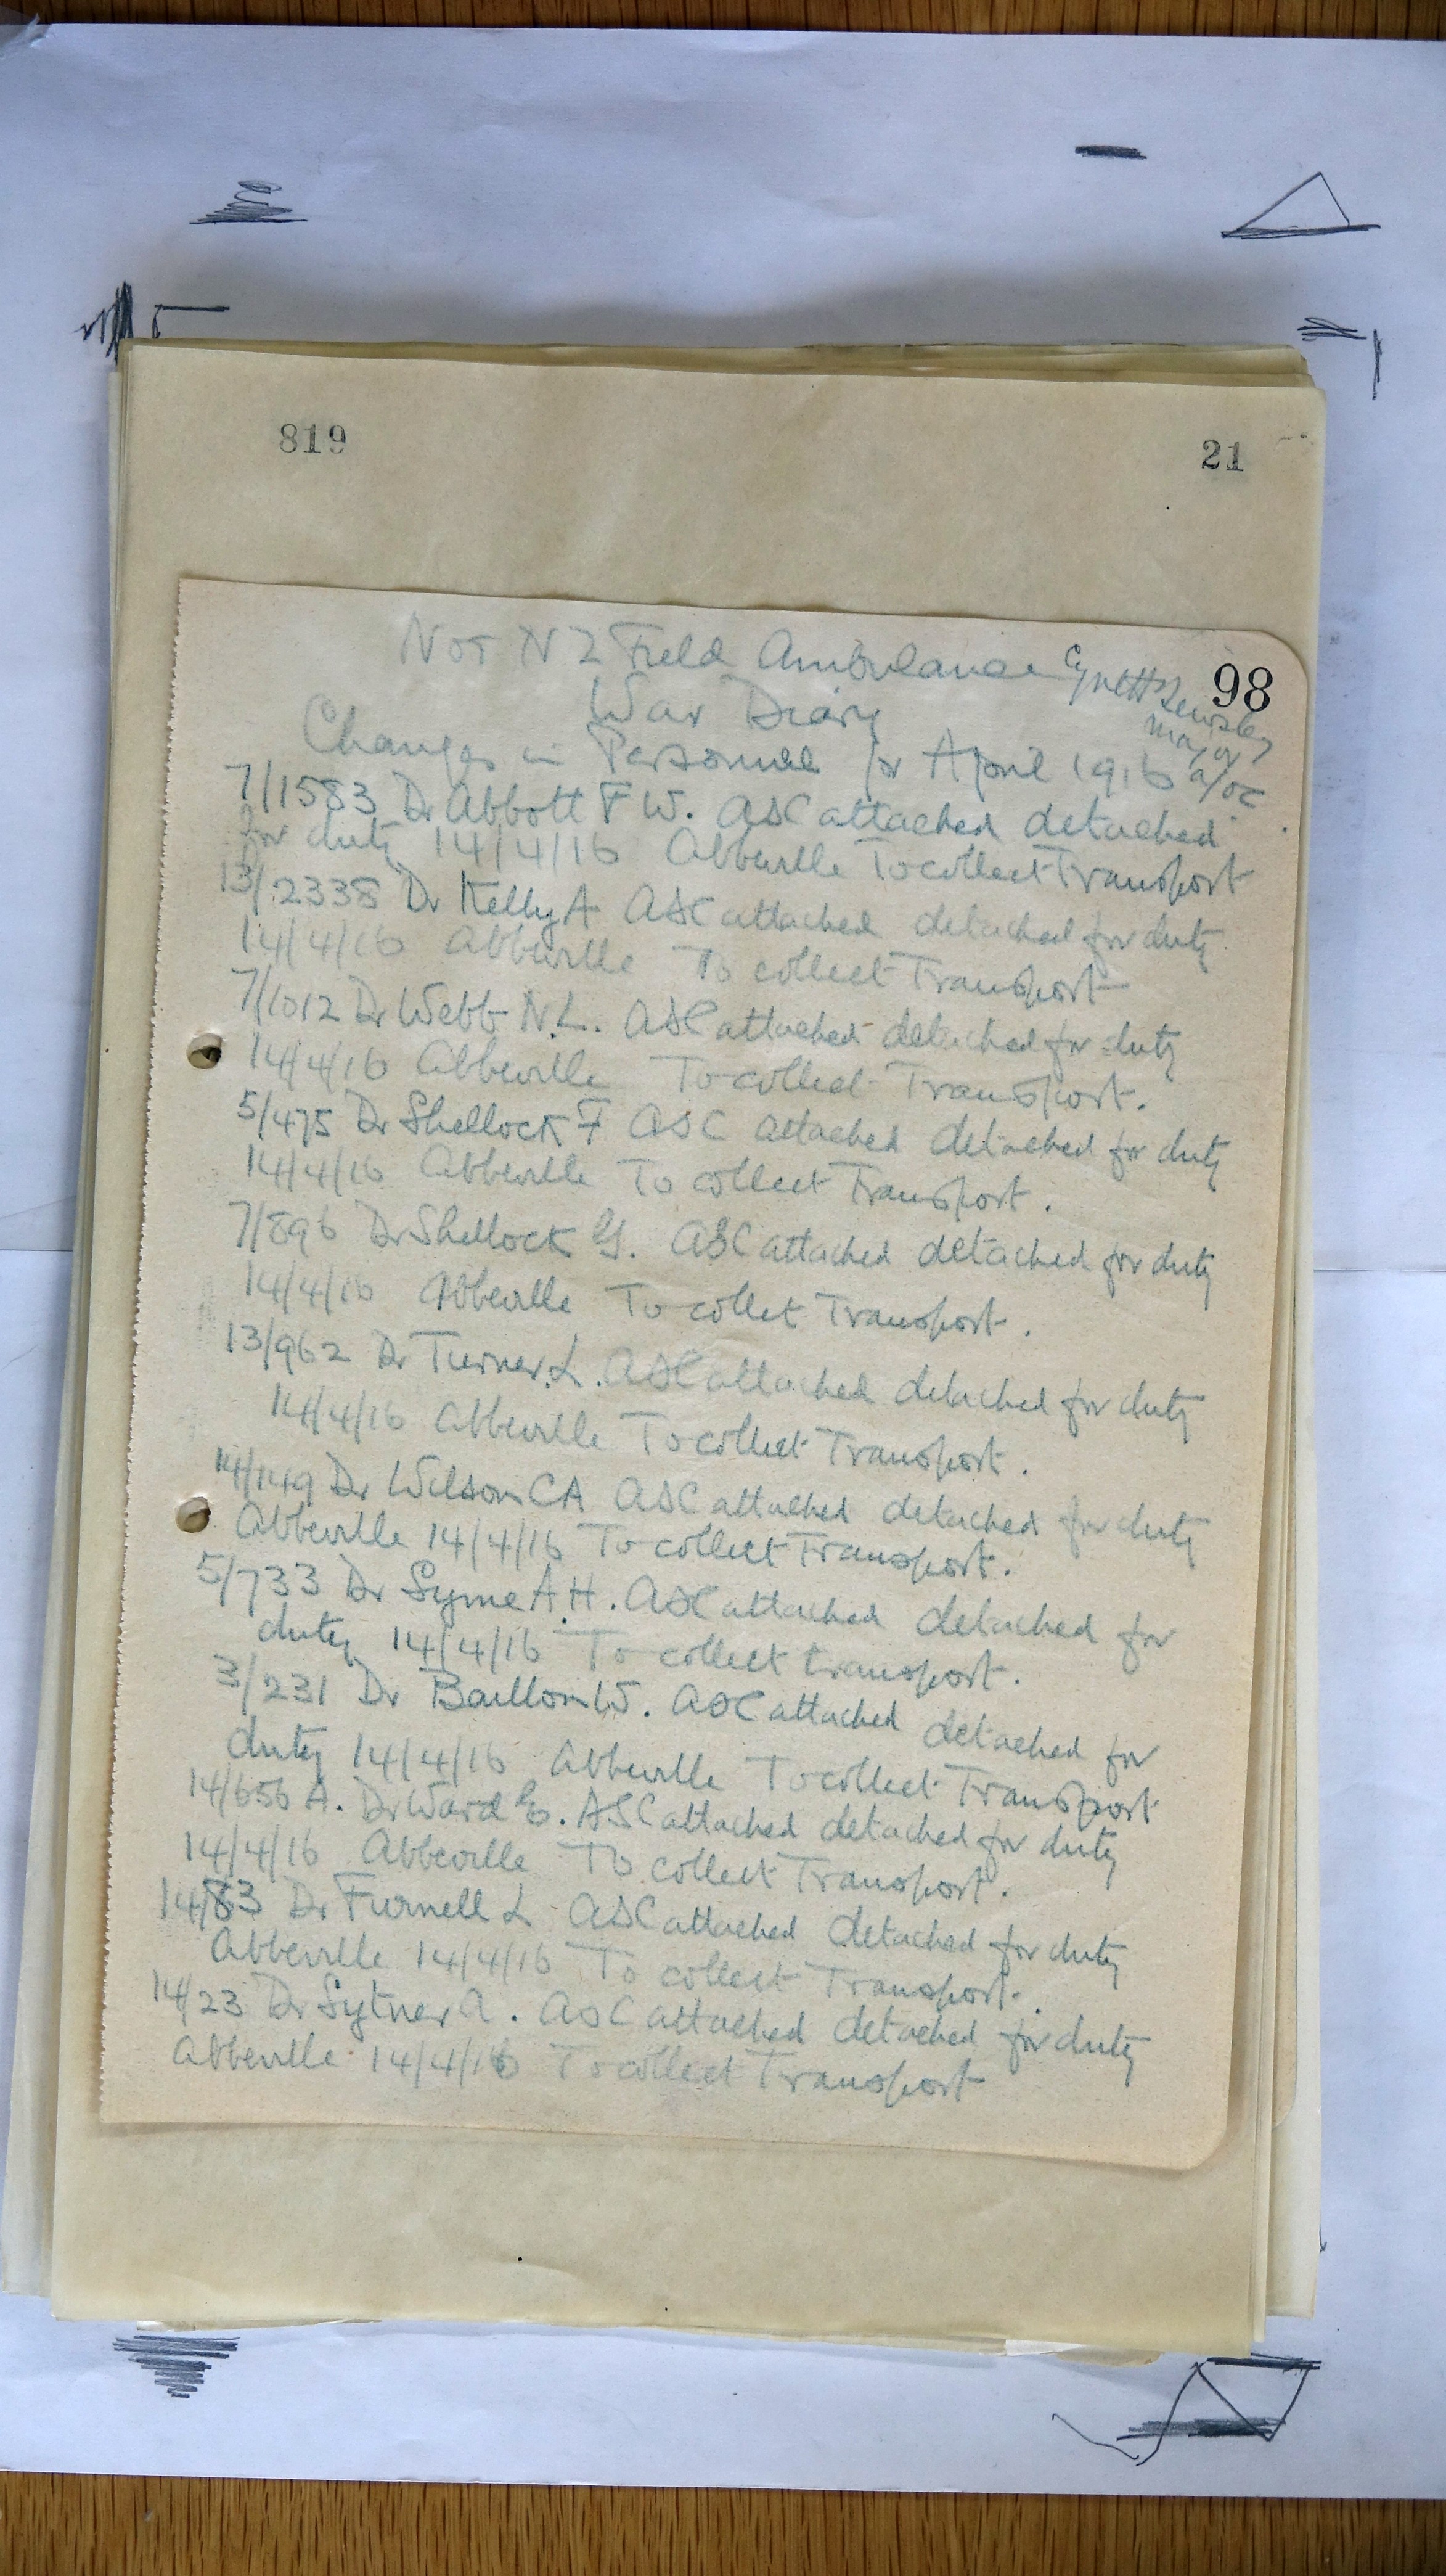 819
21
98
No 1 N Z Field Ambulance
War Diary
Major
a/oc
Changes in Personnel for April 1916
7/1583 Dr Abbott F W. ASC attached detached
for duty 14/4/16 Abbeville To collect Transport
13/2338 Dr Kelly A ASC attached detached for duty
14/4/16 Abbeville To collect Transport
7/1012 Dr Webb N.L. ASC attached detached for duty
14/4/16 Abbeville To collect Transport.
5/475 Dr Shellock F ASC attached detached for duty
14/4/16 Abbeville To collect Transport.
7/896 Dr Shellock G. ASC attached detached for duty
14/4/16 Abbeville To collet Transport.
13/962 Dr Turner. L. ASC attached detached for duty
14/4/16 Abbeville To collect Transport.
14/149 Dr Wilson CA ASC attached detached for duty
Abbeville 14/4/16 To collect Transport.
5/733 Dr Syme A.H. ASC attached detached for
duty 14/4/16 To collect transport.
3/231 Dr Baillon W. ASC attached detached for
duty 14/4/16 Abbeville To collect Transport
14/656 A. Dr Ward E. ASC attached detached for duty
14/4/16 Abbeville To collect Transport.
14/83 Dr Furnell L ASC attached detached for duty
Abbeville 14/4/16 To collect Transport.
14/23 Dr Sytner A. ASC attached detached for duty
Abbeville 14/4/16 To collect Transport